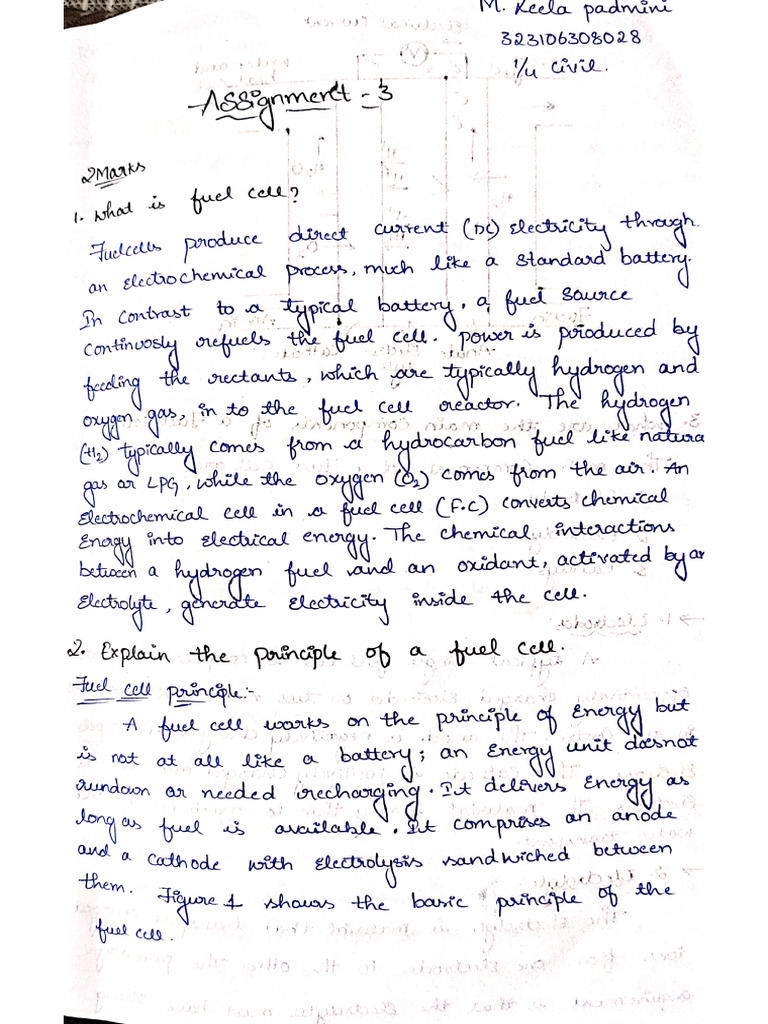 M. Keela padmini
323106308028
1/4 civil.
Assignment - 3
2Marks
1. What is fuel cell?
Fuelcells produce direct current (DC) Electricity through
an Electrochemical process, much like a standard battery.
In contrast to a typical battery, a fuel source
continuosly refuels the fuel cell. power is produced by
feeding the rectants, which are typically hydrogen and
oxygen gas, in to the fuel cell reactor. The hydrogen
(H2) typically comes from a hydrocarbon fuel like natura
gas or LPG, while the oxygen (O2) comes from the air. An
Electrochemical cell in a fuel cell (F.C) converts chemical
Energy into Electrical energy. The chemical interactions
between a hydrogen fuel and an oxidant, activated by an
Electrolyte, generate Electricity inside the cell.
2. Explain the principle of a fuel cell.
Fuel cell principle:-
A fuel cell works on the principle of Energy but
is not at all like a battery; an Energy unit doesnot
rundown or needed recharging. It delivers Energy as
long as fuel is available. It comprises an anode
and a cathode with Electrolysis sandwiched between
them. Figure 1 shows the basic principle of the
fuel cell.